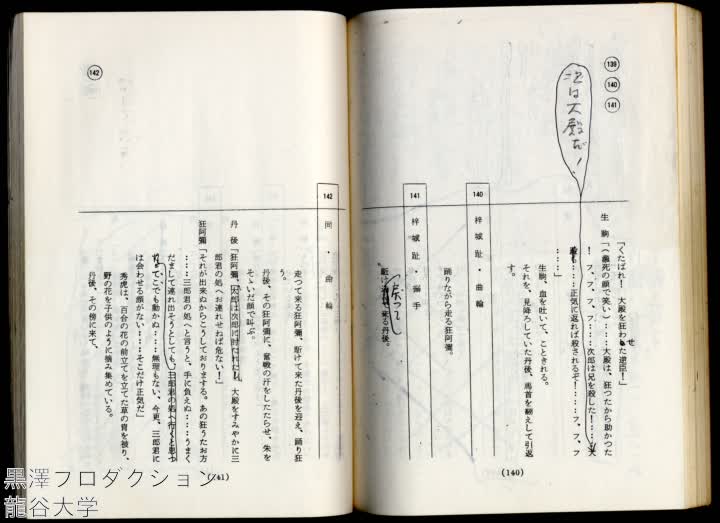 139
140
141
次は大殿だ!
「くたばれ! 大殿を狂わせた逆臣!」
生駒「(瀕死の顔で笑い)……大殿は、狂ったから助かった
! フ、フ、フ、フ……次郎は兄を殺した!……次
……正気に返れば殺されるぞ!……フ、フ、フ
……」
生駒、血を吐いて、こときれる。
それを、見降ろしていた丹後、馬首を翻えして引返
す。
140 梓城趾・曲輪
踊りながら走る狂阿彌。
141 梓城趾・搦手
来る丹後。
(140)
142
142 同・曲輪
走って来る狂阿彌、駈けて来た丹後を迎え、踊り狂
う。
丹後、その狂阿彌に、奮戦の汗をしたたらせ、朱を
そゝいだ顔で叫ぶ。
丹後「狂阿彌、太郎は次郎に討たれた!、大殿をすみやかに三
郎君の処へお連れせねば危ない!」
狂阿彌「それが出来ぬからこうしておりまする。あの狂うたお方
……三郎君の処へと言うと、手に負えぬ……うまく
だまして連れ出そうとしても、三郎君の処へ行くと思う
てこでも動かぬ……無理もない、今更、三郎君に
は会わせる顔がない……そこだけ正気だ」
秀虎は、百合の花の前立てを立てた草の冑を被り、
野の花を子供のように摘み集めている。
丹後、その傍に来て、
(141)
黒澤プロダクション
龍谷大学